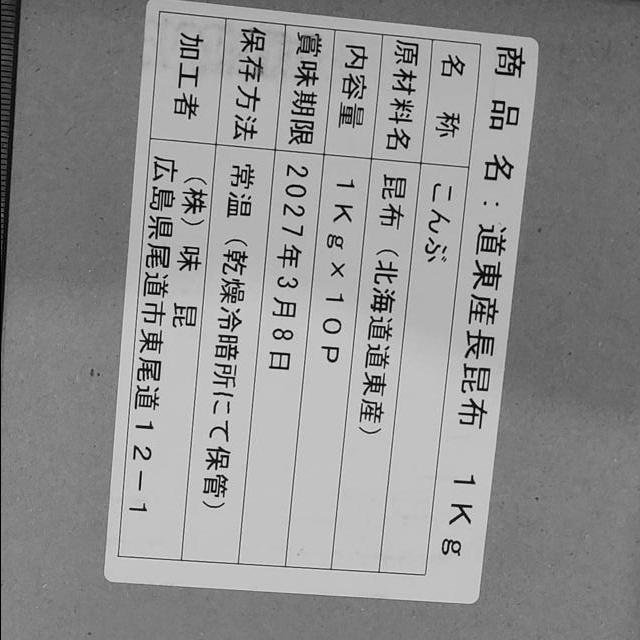 商品名：道東産長昆布　1Kg
名称　こんぶ
原材料名　昆布（北海道道東産）
内容量　1Kg×10P
賞味期限　2027年3月8日
保存方法　常温（乾燥冷暗所にて保管）
加工者　（株）味　昆
広島県尾道市東尾道12－1